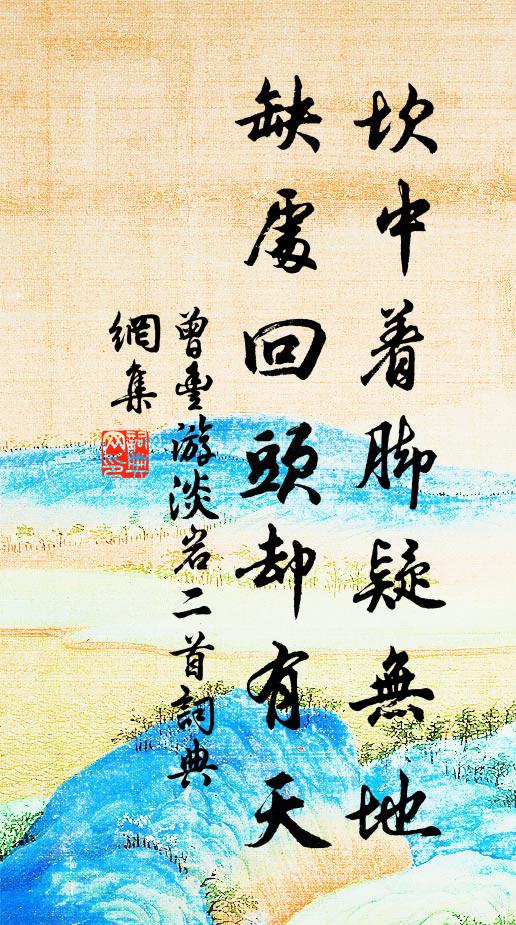 坎中着脚疑無地
缺處回頭却有天
曾豐游淡岩二首詞典
網集